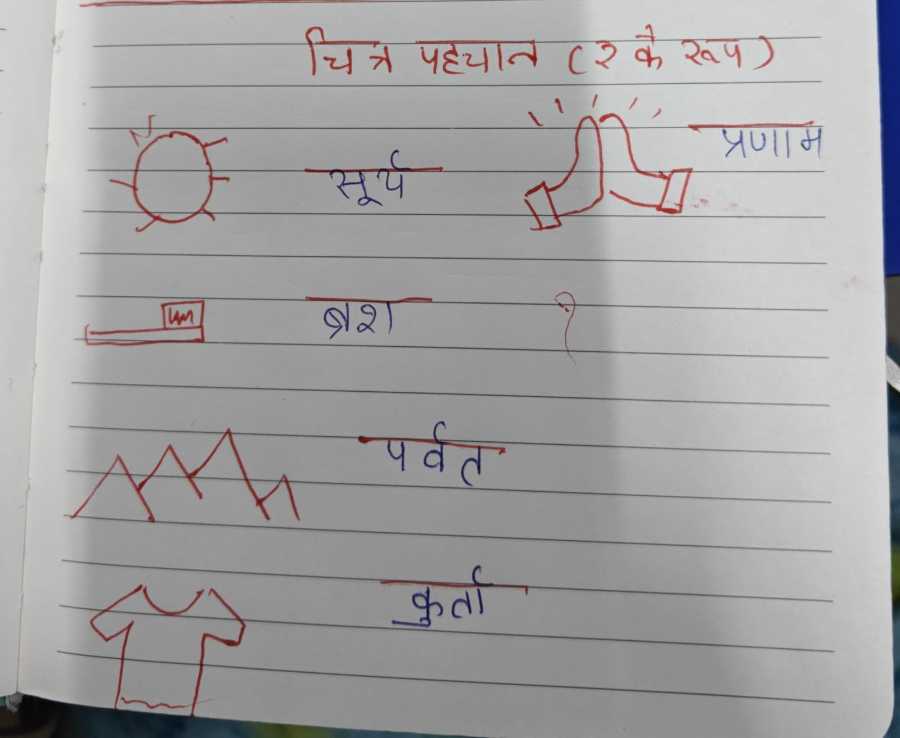 चित्र पहचान (र के रूप)
सूर्य
प्रणाम
ब्रश
पर्वत
कुर्ता